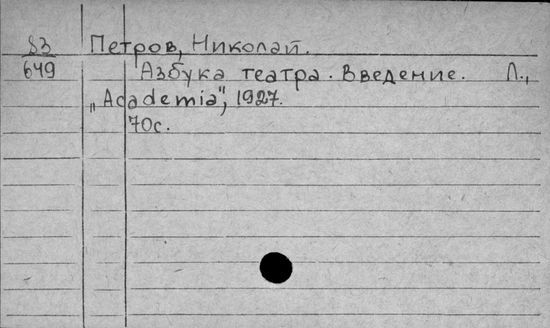 53 Петров, Николай.
649 Азбука театра. Введение. Л.,
„Academia", 1927.
70с.